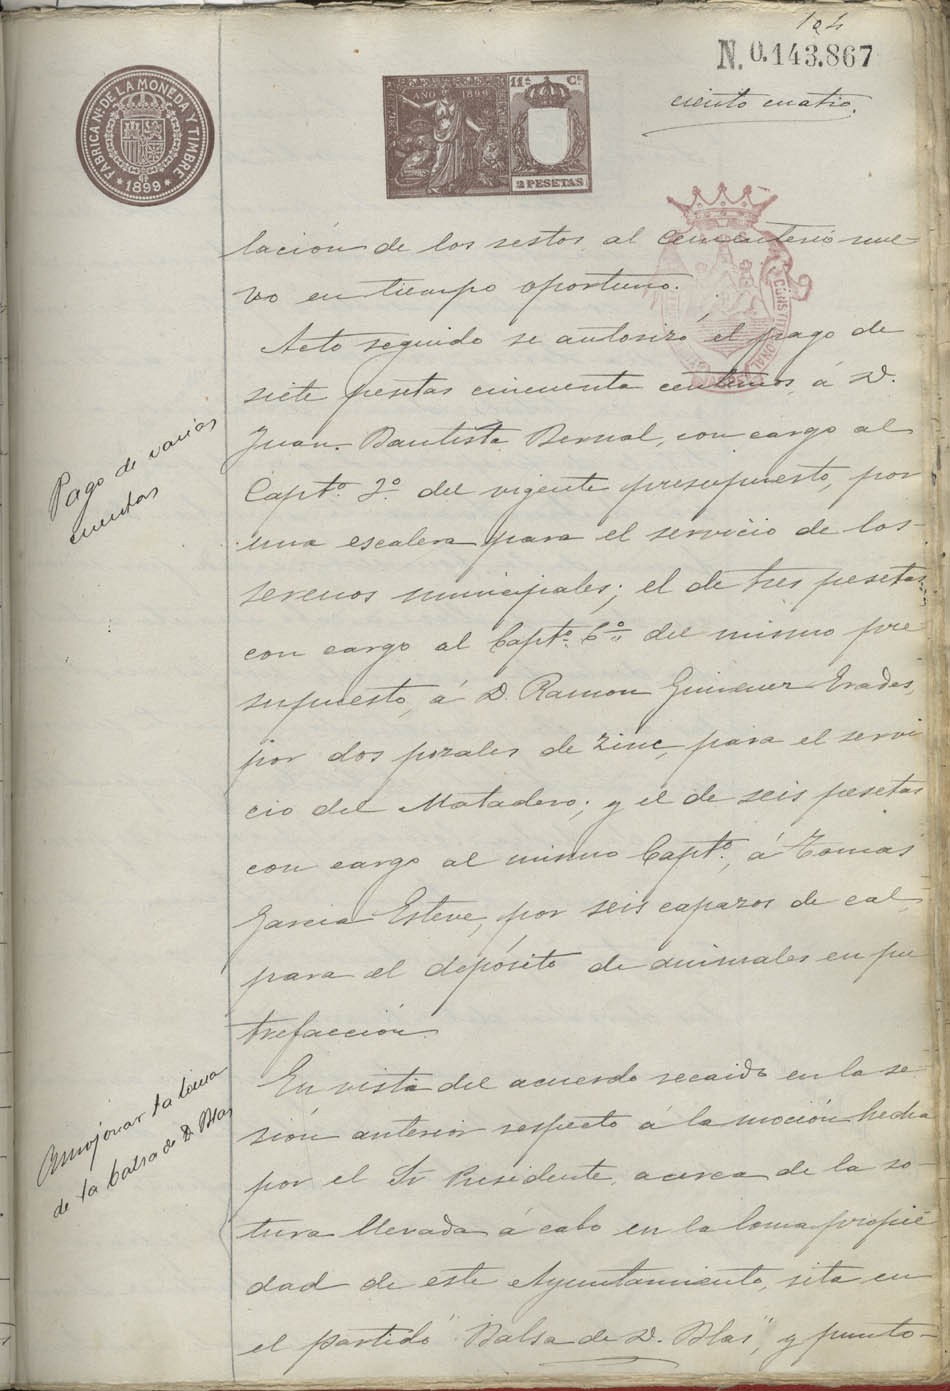 104
N. 0.143.867
ciento cuatro.
FABRICA Nal. DE LA MONEDA Y TIMBRE
* 1899 *
AÑO 1899
11ª Cª
2 PESETAS
lación de los restos al cementerio nue-
vo en tiempo oportuno.
Acto seguido se autorizó el pago de
siete pesetas cincuenta centimos, á D.
Juan Bautista Bernal, con cargo al
Captº. 2º. del vigente presupuesto, por
una escalera para el servicio de los
serenos municipales; el de tres pesetas,
con cargo al Captº. 6º. del mismo pre
supuesto, á D. Ramon Gimenez Erades,
por dos pozales de zinc, para el servi
cio del Matadero; y el de seis pesetas
con cargo al mismo Captº., á Tomás
Garcia Esteve, por seis capazos de cal,
para el depósito de animales en pu
trefacción.
En vista del acuerdo recaido en la se
sión anterior respecto á la moción hecha
por el Sr Presidente, acerca de la ro-
tura llevada á cabo en la loma propie
dad de este Ayuntamiento, sita en
el partido "Balsa de D. Blas", y punto-
Pago de varias
cuentas
Amojonar la loma
de la balsa de D Blas